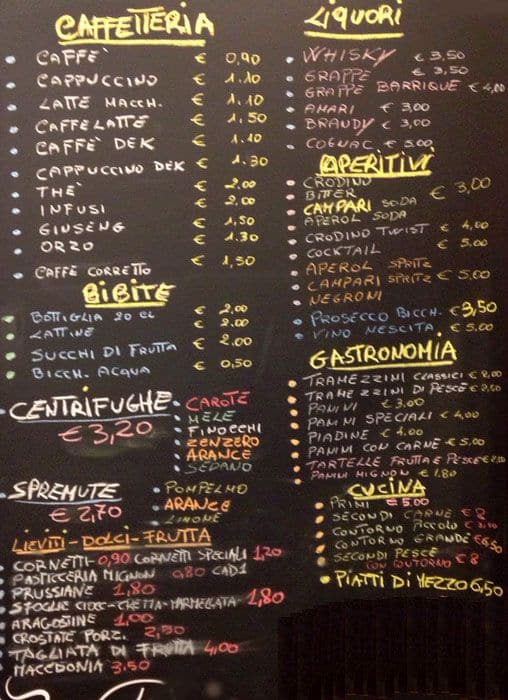 CAFFETTERIA
CAFFÈ € 0,90
CAPPUCCINO € 1.10
LATTE MACCH. € 1.10
CAFFELATTE € 1.50
CAFFÈ DEK € 1.10
CAPPUCCINO DEK € 1.30
THÈ € 2,00
INFUSI € 2,00
GINSENG € 1,50
ORZO € 1.30
CAFFÈ CORRETTO € 1,50
BIBITE
BOTTIGLIA 20 CL € 2,00
LATTINE € 2,00
SUCCHI DI FRUTTA € 2,00
BICCH. ACQUA € 0,50
CENTRIFUGHE
€ 3,20
CAROTE
MELE
FINOCCHI
ZENZERO
ARANCE
SEDANO
SPREMUTE
€ 2,70
POMPELMO
ARANCE
LIMONE
LIEVITI-DOLCI-FRUTTA
CORNETTI-0,90 CORNETTI SPECIALI 1,20
PASTICCERIA MIGNON 0,80 CAD1
PRUSSIANE 1,80
SFOGLIE CIOC-CREMA-MARMELLATA 1,80
ARAGOSTINE 1,00
CROSTATE PORZ. 2,50
TAGLIATA DI FRUTTA 4,00
MACEDONIA 3,50
LIQUORI
WHISKY € 3,50
GRAPPE € 3,50
GRAPPE BARRIQUE € 4,00
AMARI € 3,00
BRANDY € 3,00
COGNAC € 5.00
APERITIVI
CRODINO
BITTER € 3,00
CAMPARI SODA
APEROL SODA
CRODINO TWIST € 4,00
COCKTAIL € 5.00
APEROL SPRITZ
CAMPARI SPRITZ € 5,00
NEGRONI
PROSECCO BICCH. € 3,50
VINO MESCITA € 5,00
GASTRONOMIA
TRAMEZZINI CLASSICI € 2,00
TRAMEZZINI DI PESCE € 2,50
PANINI € 3.00
PANINI SPECIALI € 4,00
PIADINE € 4.00
PANINI CON CARNE € 5,00
TARTELLE FRUTTA E PESCE
PANINI MIGNON € 1.80
CUCINA
PRIMI € 5.00
SECONDI CARNE € 8
CONTORNO PICCOLO
CONTORNO GRANDE
SECONDI PESCE
CON CONTORNO € 8
PIATTI DI MEZZO 6,50